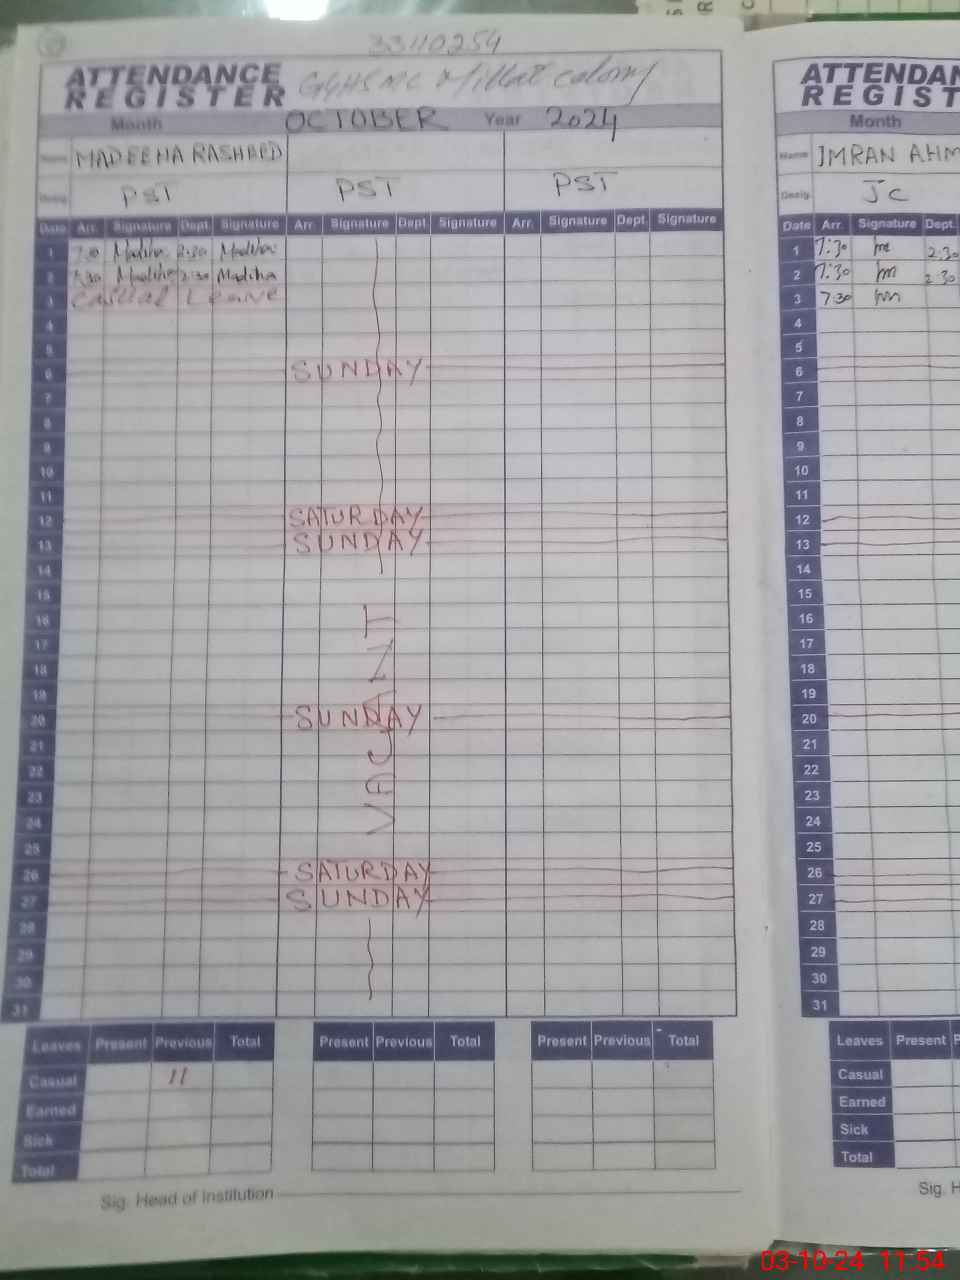 33110254
ATTENDANCE REGISTER
GGHS MC Millat colony
Month OCTOBER Year 2024
Name MADEEHA RASHEED
Desig. PST PST PST
Date Arr. Signature Dept. Signature Arr. Signature Dept. Signature Arr. Signature Dept. Signature
1 7:30 Madiha 2:30 Madiha
2 7:30 Madiha 2:30 Madiha
3 Casual Leave
4
5
6 SUNDAY
7
8
9
10
11
12 SATURDAY
13 SUNDAY
14
15
16
17
18
19
20 SUNDAY
21
22
23
24
25
26 SATURDAY
27 SUNDAY
28
29
30
31
VACANT
Leaves Present Previous Total Present Previous Total Present Previous Total
Casual 11
Earned
Sick
Total
Sig. Head of Institution
ATTENDAN
REGIST
Month
Name IMRAN AHM
Desig. JC
Date Arr. Signature Dept.
1 7:30 2:30
2 7:30 2:30
3 7:30
4
5
6
7
8
9
10
11
12
13
14
15
16
17
18
19
20
21
22
23
24
25
26
27
28
29
30
31
Leaves Present P
Casual
Earned
Sick
Total
Sig. H
03-10-24 11:54